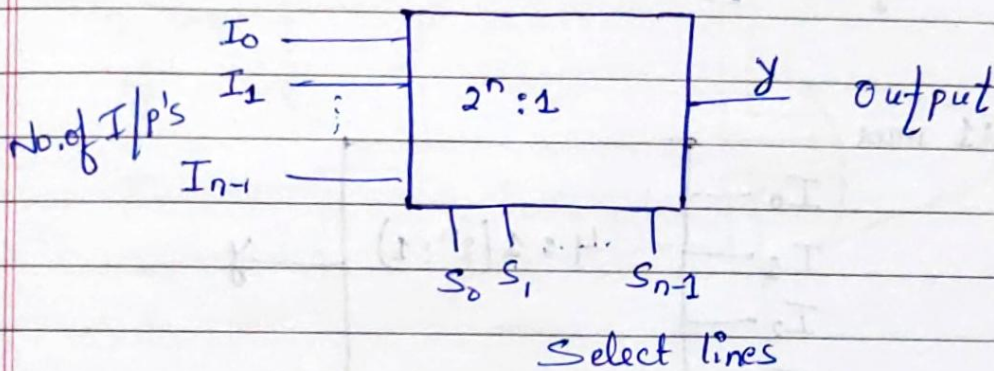 I₀
I₁
No. of I/p's
Iₙ₋₁
2ⁿ : 1
y output
S₀ S₁ ..... Sₙ₋₁
Select lines